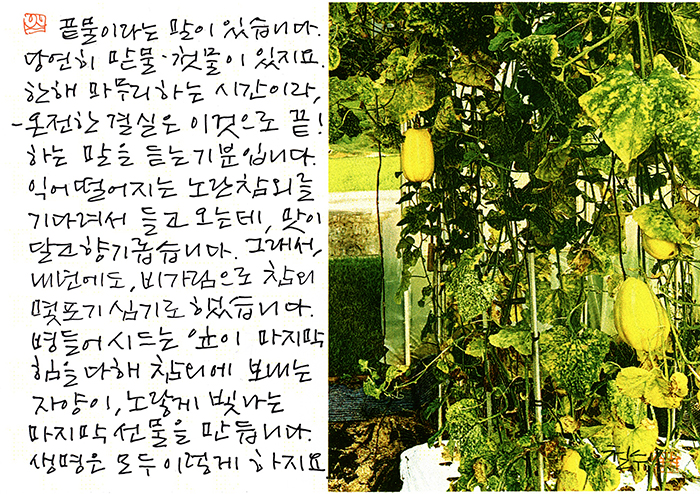 끝물이라는 말이 있습니다.
당연히 맏물·첫물이 있지요.
한해 마무리하는 시간이라,
-온전한 결실은 이것으로 끝!
하는 말을 듣는 기분입니다.
익어 떨어지는 노란 참외를
기다려서 들고 오는데, 맛이
달고 향기롭습니다. 그래서,
내년에도, 비가림으로 참외
몇포기 심기로 했습니다.
병들어 시드는 잎이 마지막
힘을 다해 참외에 보내는
자양이, 노랗게 빛나는
마지막 선물을 만듭니다.
생명은 모두 이렇게 하지요
철수